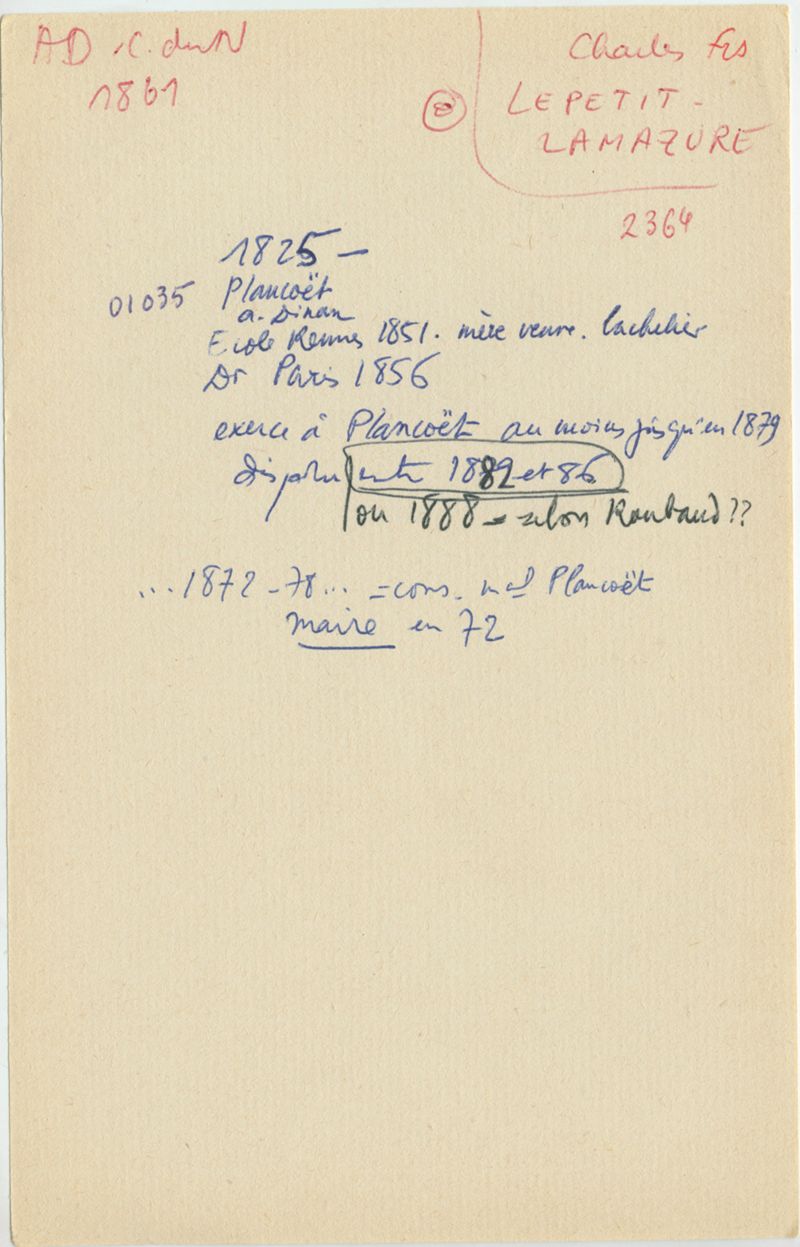 AD . C. du N
1861
Charles Frs
LEPETIT-
LAMAZURE
2364
1825 –
01035 Plancoët
a. Dinan
Ecole Rennes 1851. mère veuve. bachelier
Dr Paris 1856
exerce à Plancoët au moins jusqu'en 1879
disparu entre 1882 et 86
ou 1888 – selon Roubaud ??
...1872-78... = cons. mal Plancoët
maire en 72